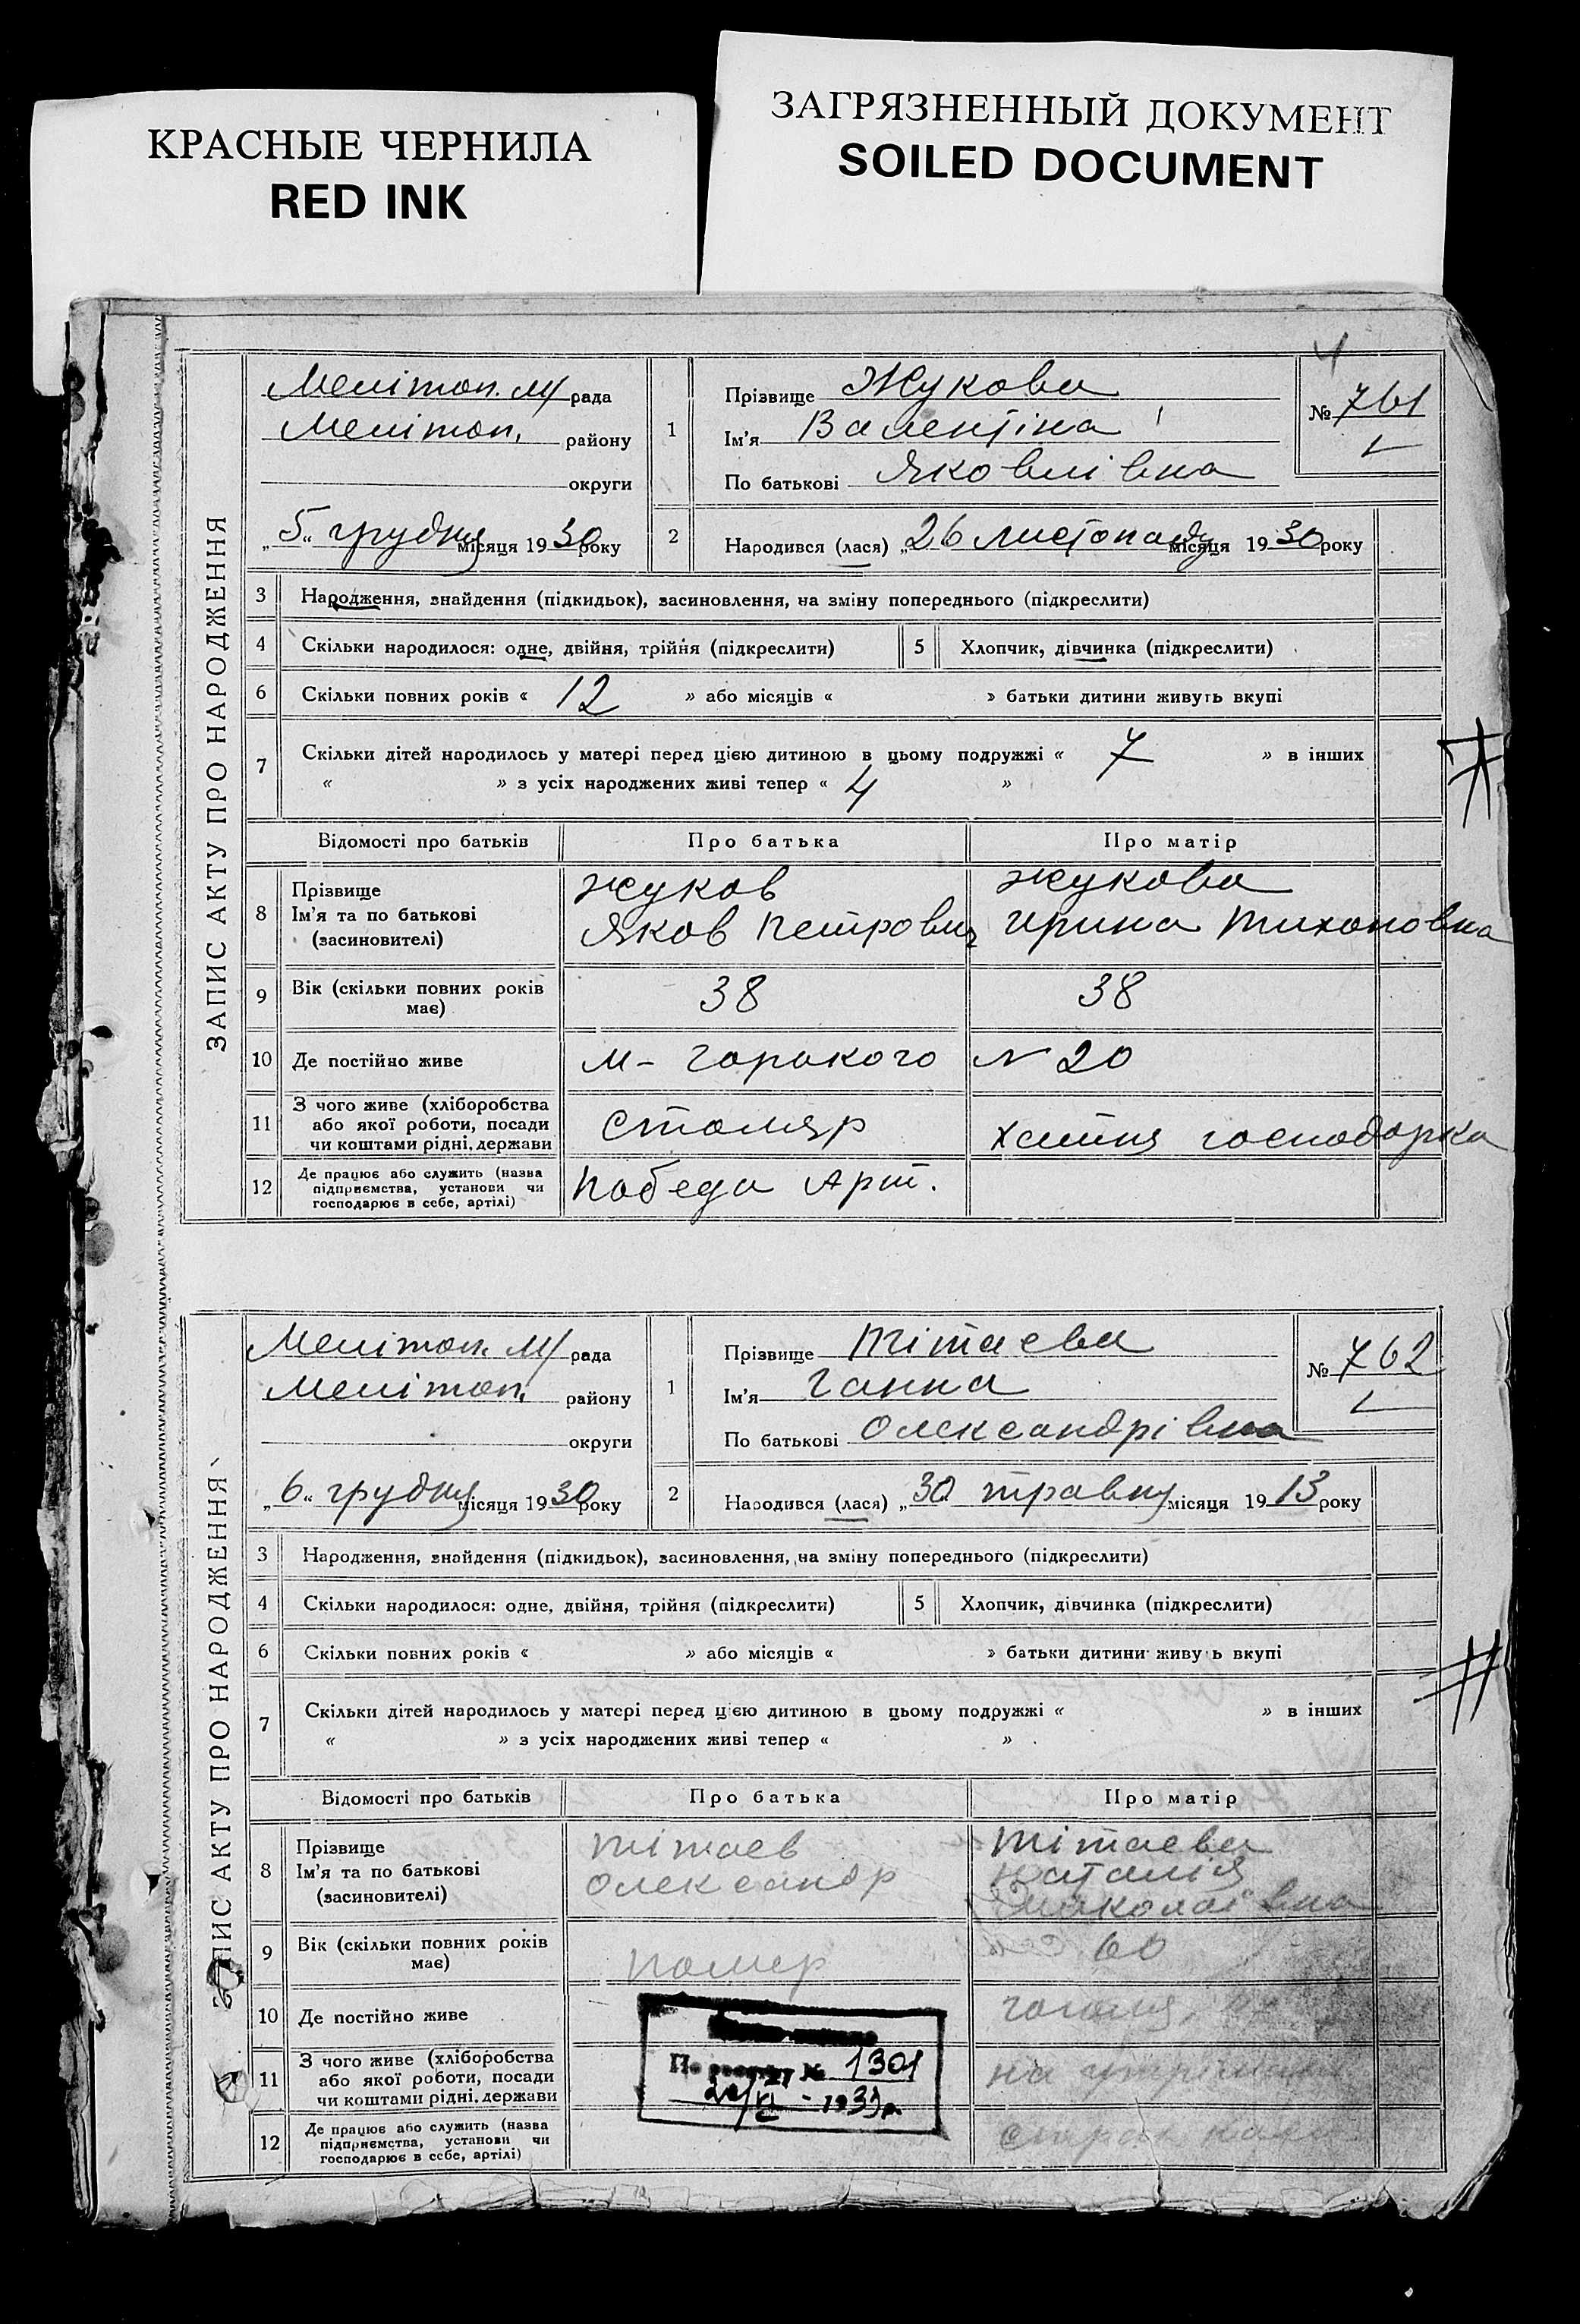 КРАСНЫЕ ЧЕРНИЛА
RED INK
ЗАГРЯЗНЕННЫЙ ДОКУМЕНТ
SOILED DOCUMENT
ЗАПИС АКТУ ПРО НАРОДЖЕННЯ
Мелітоп. М/ рада
Мелітоп. району
округи
„5“ грудня місяця 1930 року
1
Прізвище Жукова
Ім'я Валентіна
По батькові Яковлівна
4
№ 761
2
Народився (лася) „26 листопаду місяця 1930 року
3 Народження, знайдення (підкидьок), засиновлення, на зміну попереднього (підкреслити)
4 Скільки народилося: одне, двійня, трійня (підкреслити) 5 Хлопчик, дівчинка (підкреслити)
6 Скільки повних років « 12 » або місяців « » батьки дитини живуть вкупі
7 Скільки дітей народилось у матері перед цією дитиною в цьому подружжі « 7 » в інших
« » з усіх народжених живі тепер « 4 »
Відомості про батьків Про батька Про матір
8 Прізвище Жуков Жукова
Ім'я та по батькові Яков Петрович Ирина Тихоновна
(засиновителі)
9 Вік (скільки повних років має) 38 38
10 Де постійно живе М- Горького N 20
11 З чого живе (хліборобства
або якої роботи, посади Столяр хатня господарка
чи коштами рідні, держави
12 Де працює або служить (назва
підприємства, установи чи Победа Арт.
господарює в себе, артілі)
ЗАПИС АКТУ ПРО НАРОДЖЕННЯ
Мелітоп. М/ рада
Мелітоп. району
округи
„6“ грудня місяця 1930 року
1
Прізвище Тітаева
Ім'я Ганна
По батькові Олександрівна
№ 762
2
Народився (лася) „30 травня місяця 1913 року
3 Народження, знайдення (підкидьок), засиновлення, на зміну попереднього (підкреслити)
4 Скільки народилося: одне, двійня, трійня (підкреслити) 5 Хлопчик, дівчинка (підкреслити)
6 Скільки повних років « » або місяців « » батьки дитини живуть вкупі
7 Скільки дітей народилось у матері перед цією дитиною в цьому подружжі « » в інших
« » з усіх народжених живі тепер « »
Відомості про батьків Про батька Про матір
8 Прізвище Тітаев Тітаева
Ім'я та по батькові Олександр Наталія
(засиновителі) Миколаївна
9 Вік (скільки повних років має) помер 60
10 Де постійно живе Гоголя,
11 З чого живе (хліборобства
або якої роботи, посади на
чи коштами рідні, держави
12 Де працює або служить (назва
підприємства, установи чи
господарює в себе, артілі)
По реестру № 1301